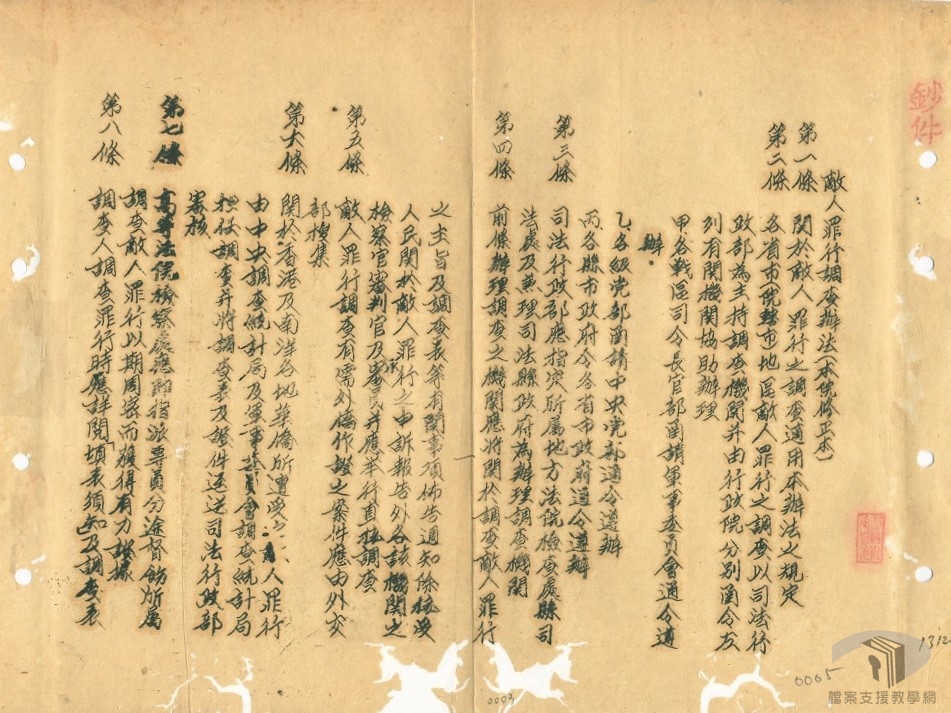 鈔件
敵人罪行調查辦法(本院修正本)
第一條 關於敵人罪行之調查適用本辦法之規定
第二條 各省市院轄市地區敵人罪行之調查以司法行
政部為主持調查機關并由行政院分別函令左
列有關機關協助辦理
甲各戰區司令長官部函請軍事委員會通令遵
辦
乙各級党部函請中央党部通令遵辦
丙各縣市政府令各省市政府通令遵辦
第三條 司法行政部應指定所屬地方法院檢查處縣司
法處及兼理司法縣政府為辦理調查機關
第四條 前條辦理調查之機關應將關於調查敵人罪行
之主旨及調查表等有關事項佈告週知除核受
人民關於敵人罪行之申訴報告外各該機關之
檢察官審判官及審 并應举行直接調查
第五條 敵人罪行調查有需外僑作證之案件應由外交
部搜集
第六條 關於香港及南洋各地華僑所遭受 人罪行
由中央調查統計局及軍事委員會調查統計局
担任調查并將調查表及證件送送司法行政部
審核
第七條 高等法院檢察處應即指派專員分途督飭所屬
調查敵人罪行以期周密而獲得有力證據
第八條 調查人調查罪行時應詳閱「填表須知」及調查表
1312
0005
0003
檔案支援教學網